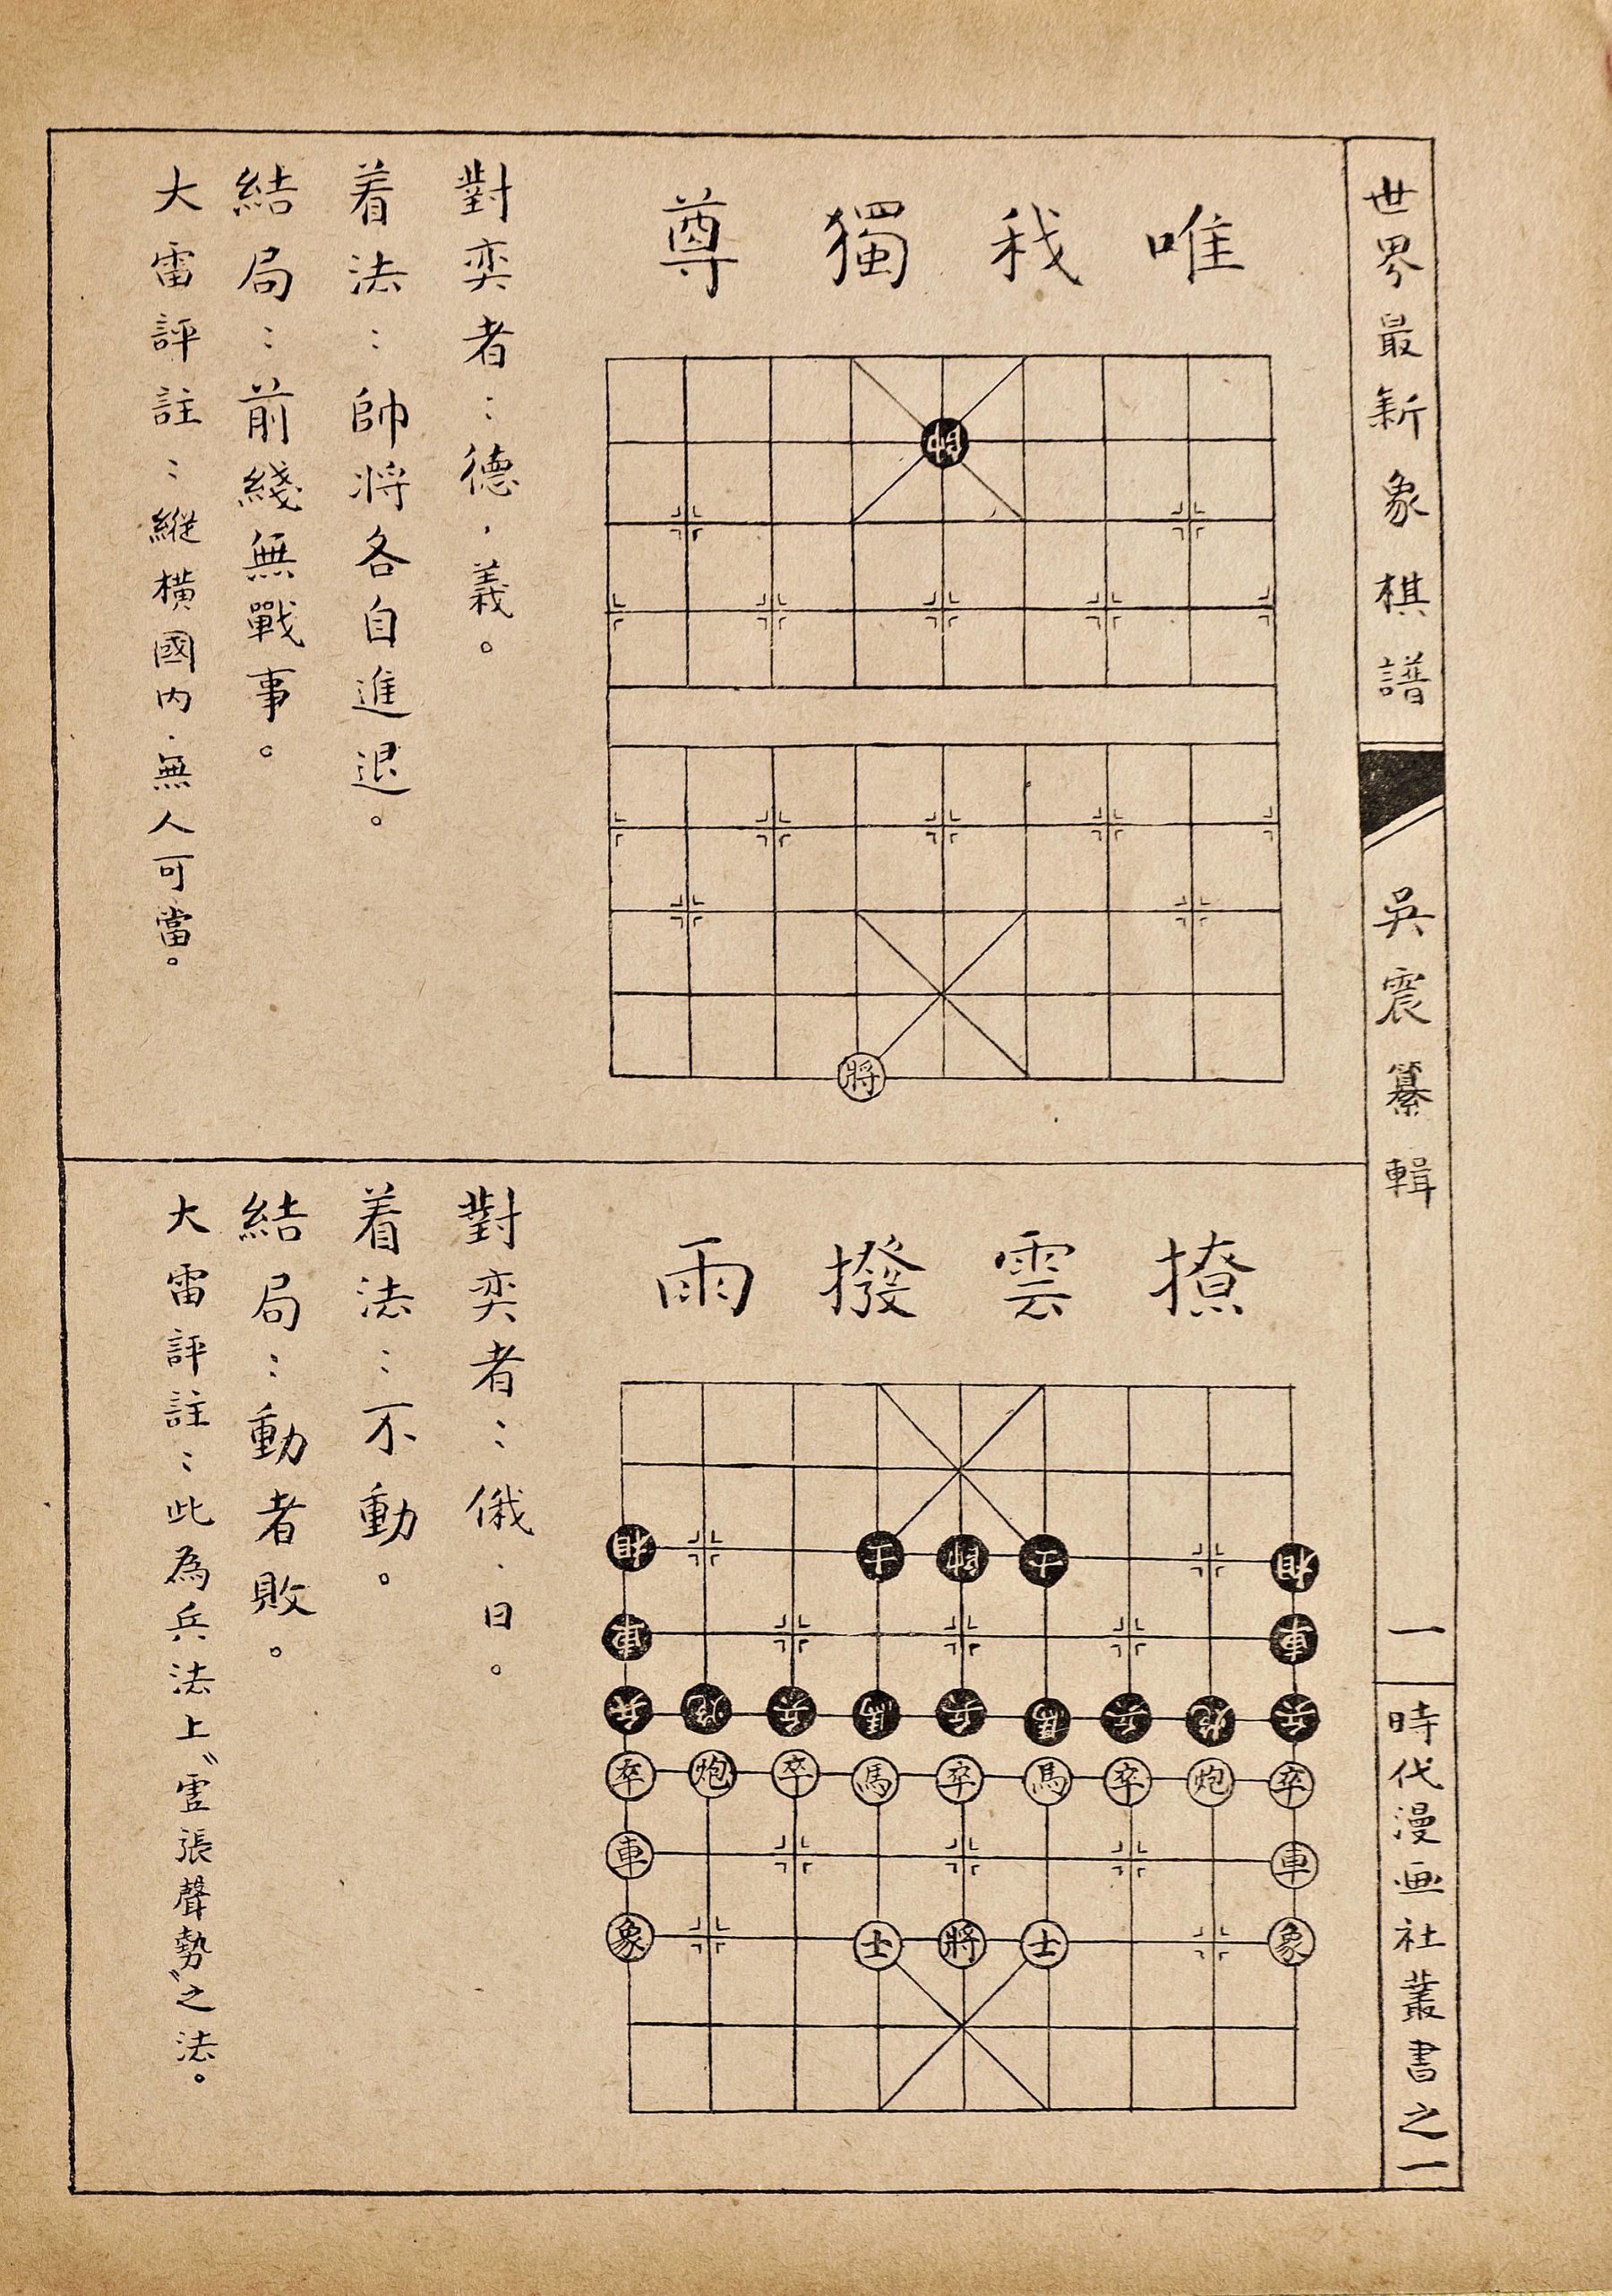 世界最新象棋譜
吳震纂輯
一
時代漫画社叢書之一
唯我獨尊
帥
將
對奕者：德，義。
着法：帥將各自進退。
結局：前綫無戰事。
大雷評註：縱橫國內，無人可當。
撩雲撥雨
相士帥士相
車車
兵炮兵馬兵馬兵炮兵
卒炮卒馬卒馬卒炮卒
車車
象士將士象
對奕者：俄．日。
着法：不動。
結局：動者敗。
大雷評註：此為兵法上〝虛張聲勢〞之法。